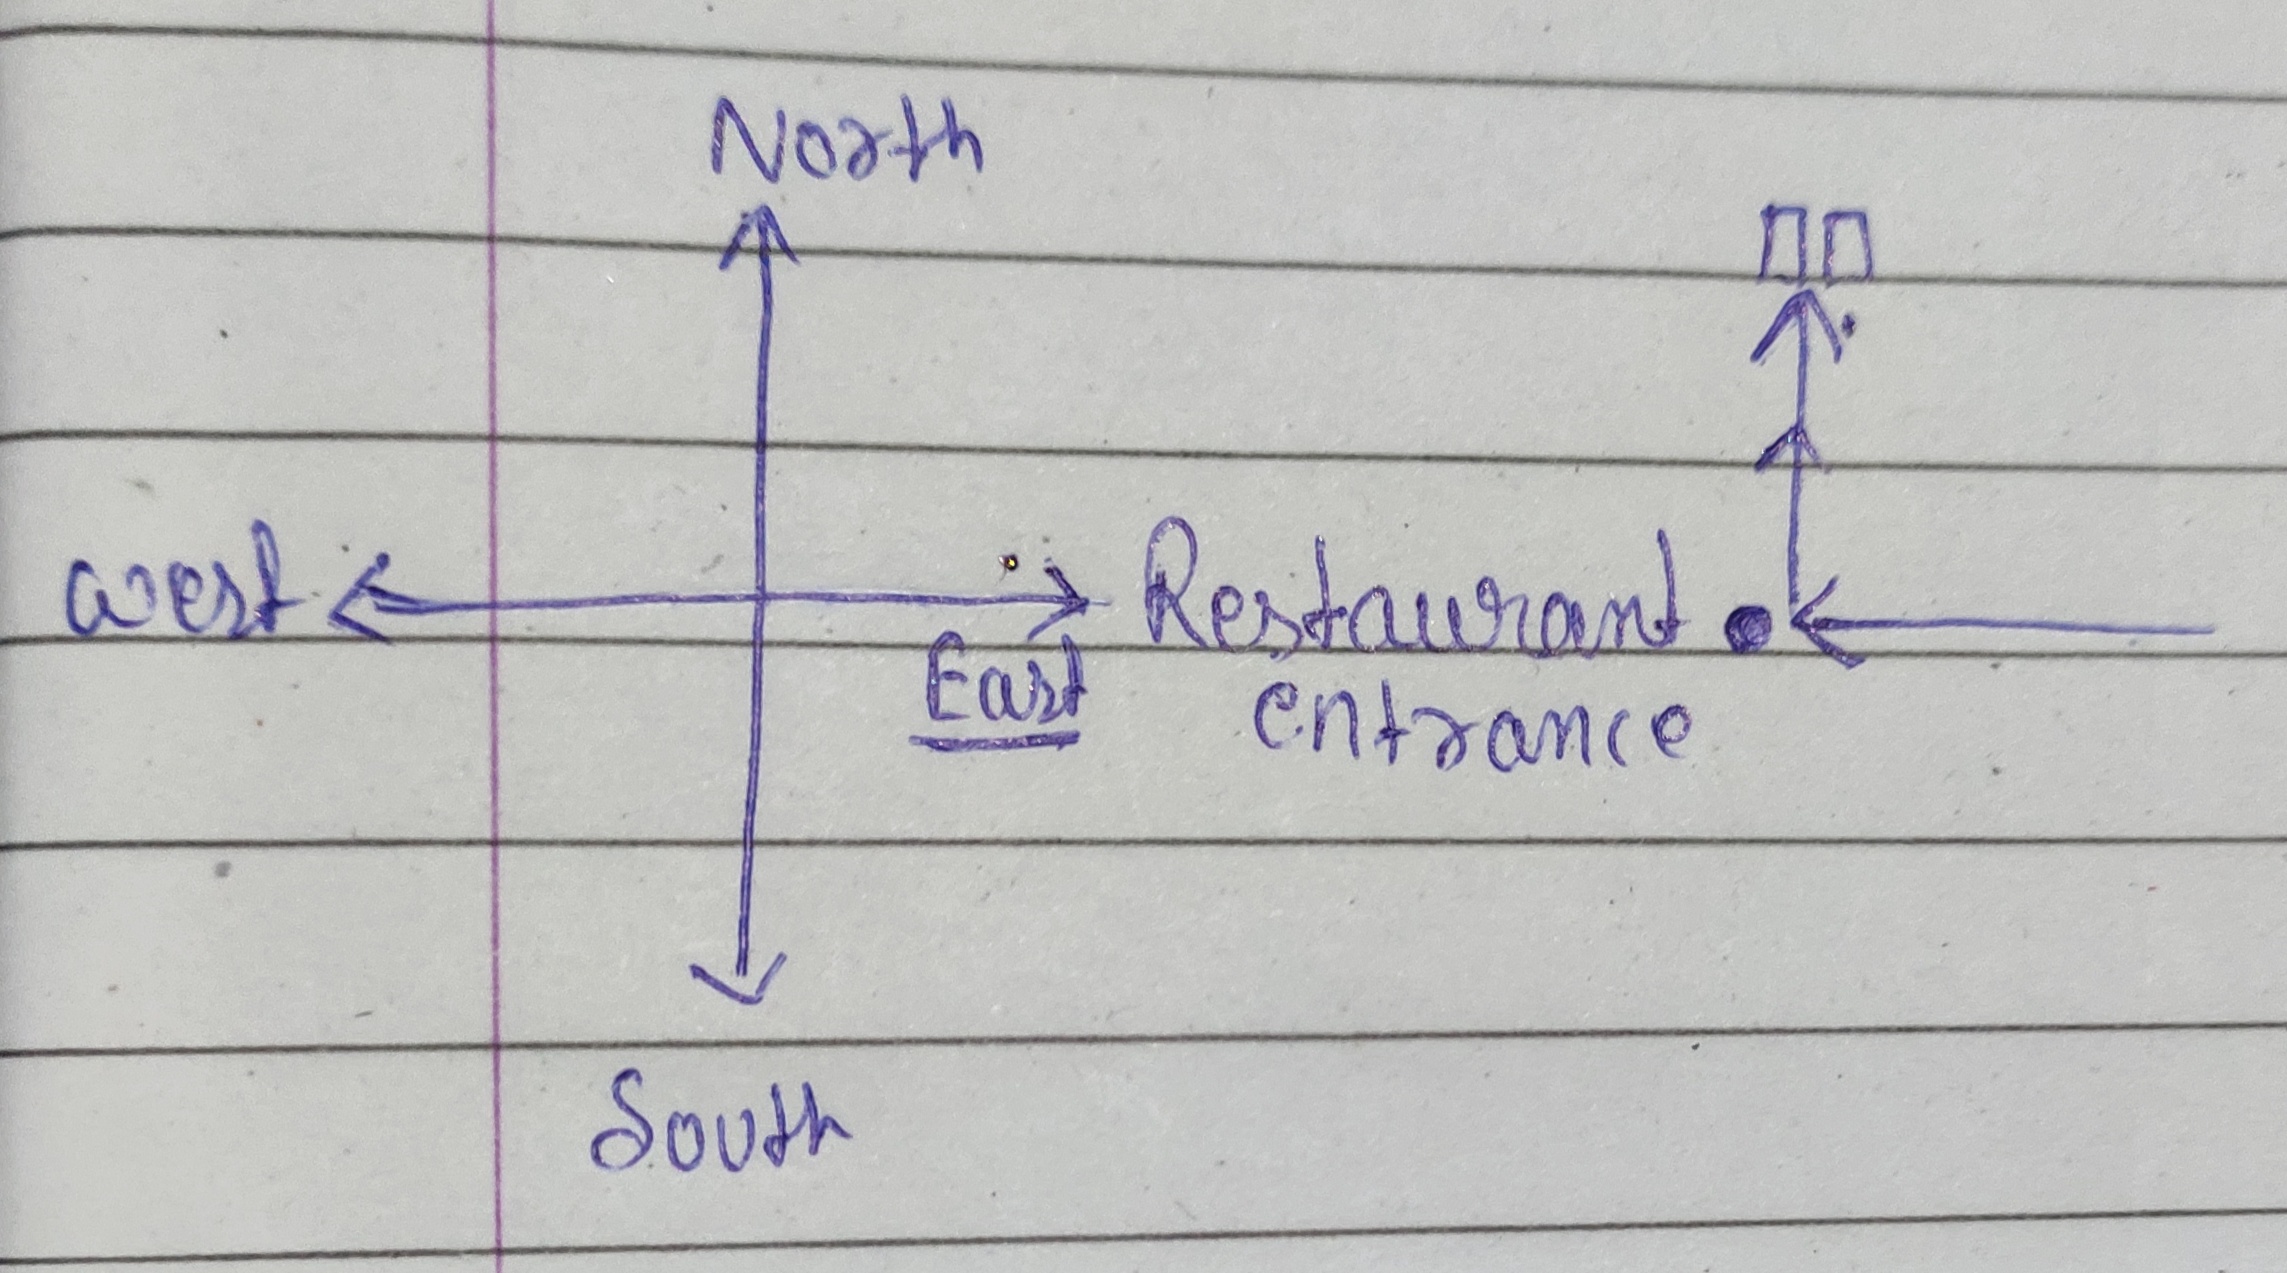 North
west
Restaurant
East
entrance
South